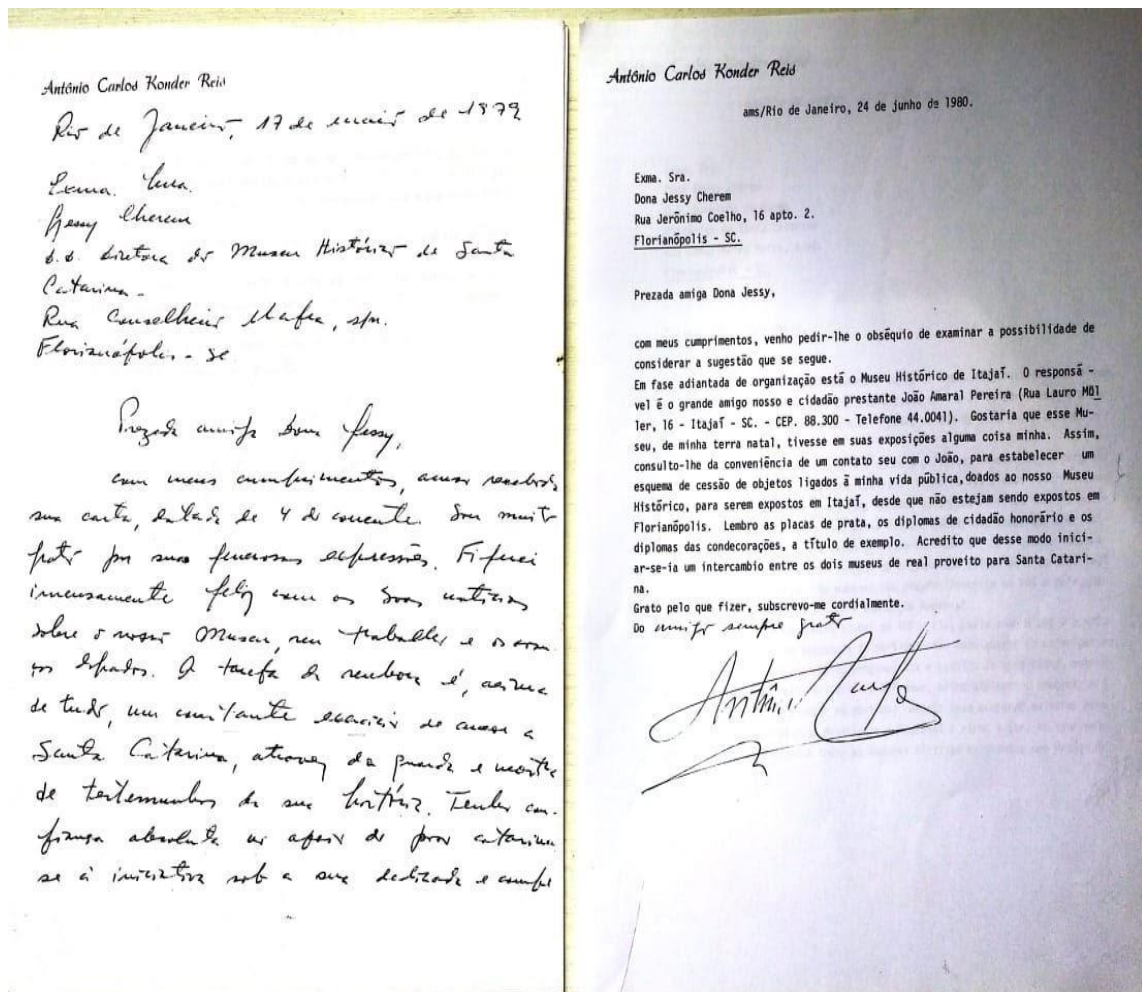 Antônio Carlos Konder Reis
Rio de Janeiro, 17 de maio de 1979
Exma. Sra.
Jessy Cherem
D.D. Diretora do Museu Histórico de Santa
Catarina -
Rua Conselheiro Mafra, s/n.
Florianópolis - SC
Prezada amiga Dona Jessy,
com meus cumprimentos, acuso recebida
sua carta, datada de 4 do corrente. Sou muito
grato por suas generosas expressões. Fiquei
imensamente feliz com as suas notícias
sobre o nosso Museu, seu trabalho e os
. A tarefa da senhora é, acima
de tudo, um constante exercício de amor a
Santa Catarina, através da guarda e mostra
de testemunhos da sua história. Tenho con-
fiança absoluta no apoio do povo catarinen
se à iniciativa sob a sua dedicada e compe
Antônio Carlos Konder Reis
ams/Rio de Janeiro, 24 de junho de 1980.
Exma. Sra.
Dona Jessy Cherem
Rua Jerônimo Coelho, 16 apto. 2.
Florianópolis - SC.
Prezada amiga Dona Jessy,
com meus cumprimentos, venho pedir-lhe o obséquio de examinar a possibilidade de
considerar a sugestão que se segue.
Em fase adiantada de organização está o Museu Histórico de Itajaí. O responsá -
vel é o grande amigo nosso e cidadão prestante João Amaral Pereira (Rua Lauro Mül
ler, 16 - Itajaí - SC. - CEP. 88.300 - Telefone 44.0041). Gostaria que esse Mu-
seu, de minha terra natal, tivesse em suas exposições alguma coisa minha. Assim,
consulto-lhe da conveniência de um contato seu com o João, para estabelecer um
esquema de cessão de objetos ligados à minha vida pública, doados ao nosso Museu
Histórico, para serem expostos em Itajaí, desde que não estejam sendo expostos em
Florianópolis. Lembro as placas de prata, os diplomas de cidadão honorário e os
diplomas das condecorações, a título de exemplo. Acredito que desse modo inici-
ar-se-ia um intercambio entre os dois museus de real proveito para Santa Catari-
na.
Grato pelo que fizer, subscrevo-me cordialmente.
Do amigo sempre grato
Antônio Carlos